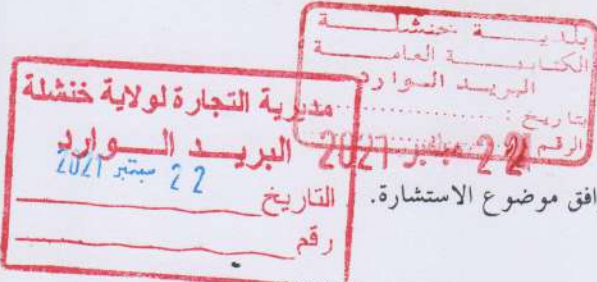 بلدية خنشلة
الكتابة العامة
البريد الوارد
بتاريخ :
الرقم
22 2021
مديرية التجارة لولاية خنشلة
البريد الوارد
22 سبتمبر 2021
التاريخ
رقم
افق موضوع الاستشارة.